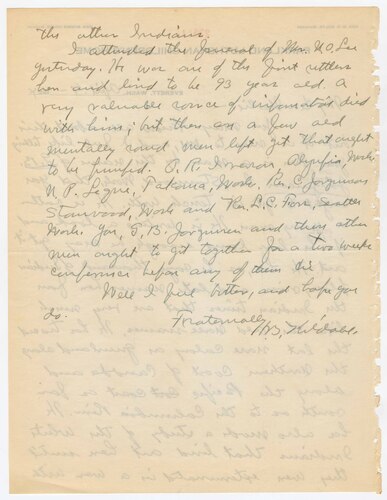 the other Indians.
I attended the funeral of Mr. N. O. Lee
yesterday. He was one of the first settlers
here and lived to be 93 year old. A
very valuable source of information died
with him; but there are a few old
mentally sound men left yet that ought
to be pumped. O. R. Olympia, Wash.
N. P. Tacoma, Wash. Rev. C. Jorgensen
Stanwood, Wash and Rev. L. C. Foss, Seattle
Wash. You, T. B. Jorgensen and these other
men ought to get together for a two weeks
conference before any of them die
Well I feel better, and hope you
do.
Fraternally